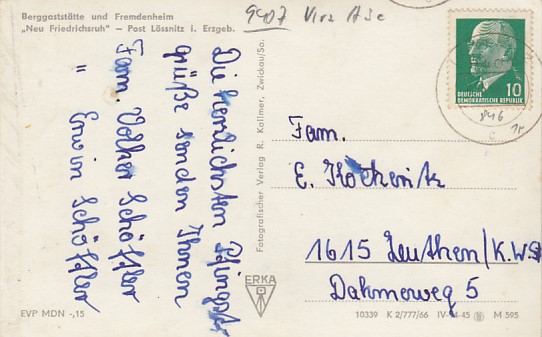 Berggaststätte und Fremdenheim
„Neu Friedrichsruh" — Post Lössnitz i. Erzgeb.
9407
Die herzlichsten Pfingst-
grüße senden Ihnen
Fam. Volker Schöffler
" Erwin Schöffler
EVP MDN -,15
Fotografischer Verlag R. Kallmer, Zwickau/Sa.
ERKA
DEUTSCHE
DEMOKRATISCHE REPUBLIK
10
Fam.
E. Kockeritz
1615 Zeuthen/K.W.
Dahmerweg 5
10339 K 2/777/66 IV-14-45 M 595